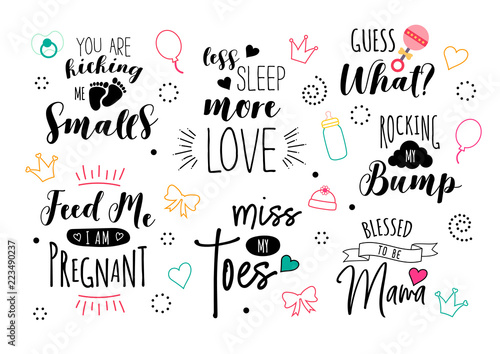 YOU ARE
kicking
ME
Smalls
less
SLEEP
more
LOVE
GUESS
What?
ROCKING
MY
Bump
Feed Me
I AM
PREGNANT
miss
MY
Toes
BLESSED
TO BE
Mama
Adobe Stock | #223490237